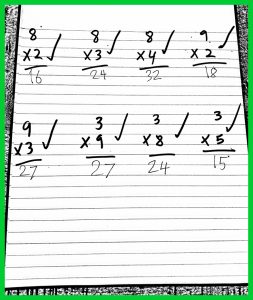 8 8 8 9
x2 ✓ x3 ✓ x4 ✓ x2 ✓
16 24 32 18
9 3 3 3
x3 ✓ x9 ✓ x8 ✓ x5 ✓
27 27 24 15